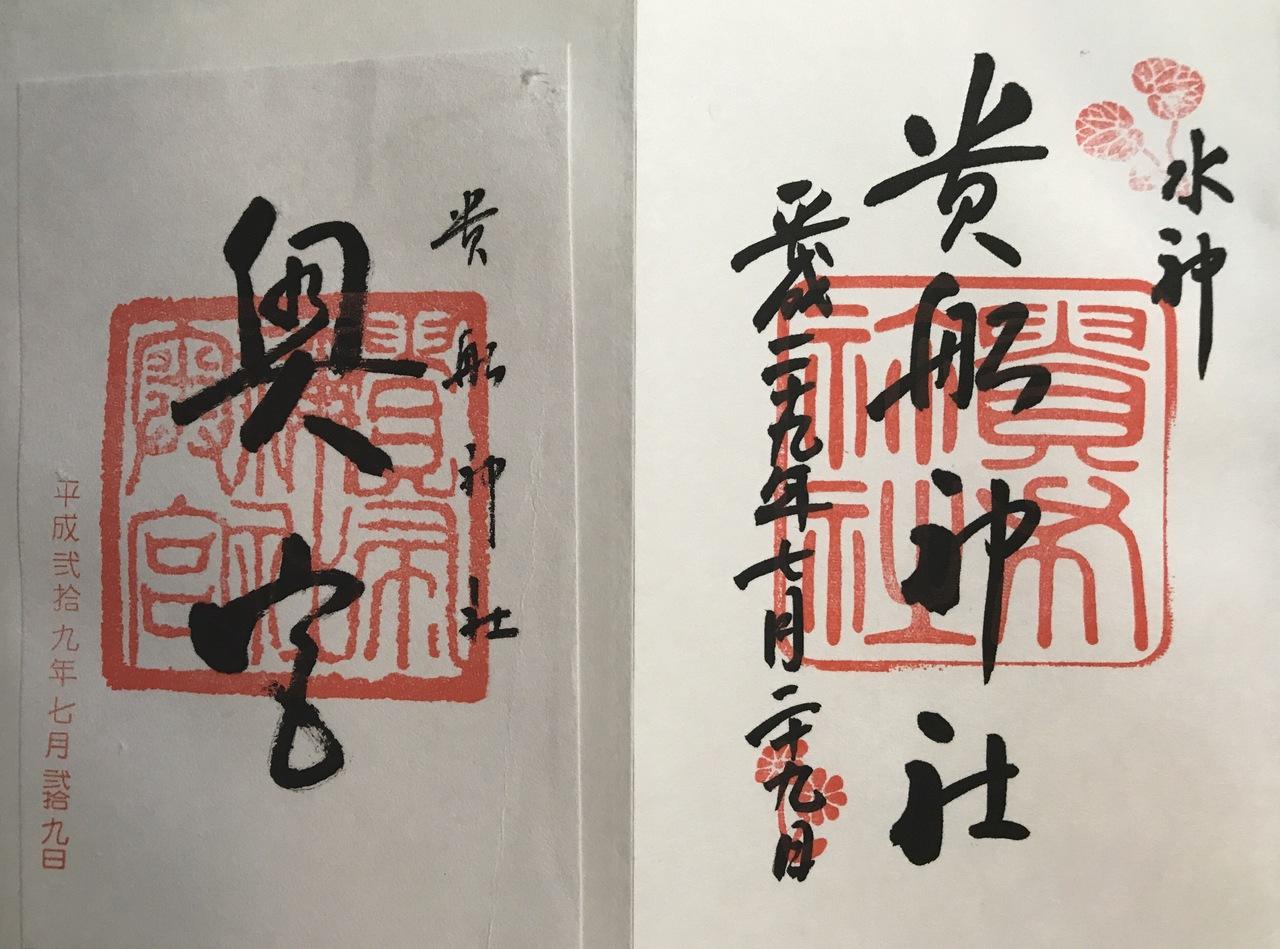 水神
貴船神社
貴布祢社
平成二十九年七月二十九日
貴船神社
奥宮
平成弐拾九年七月弐拾九日